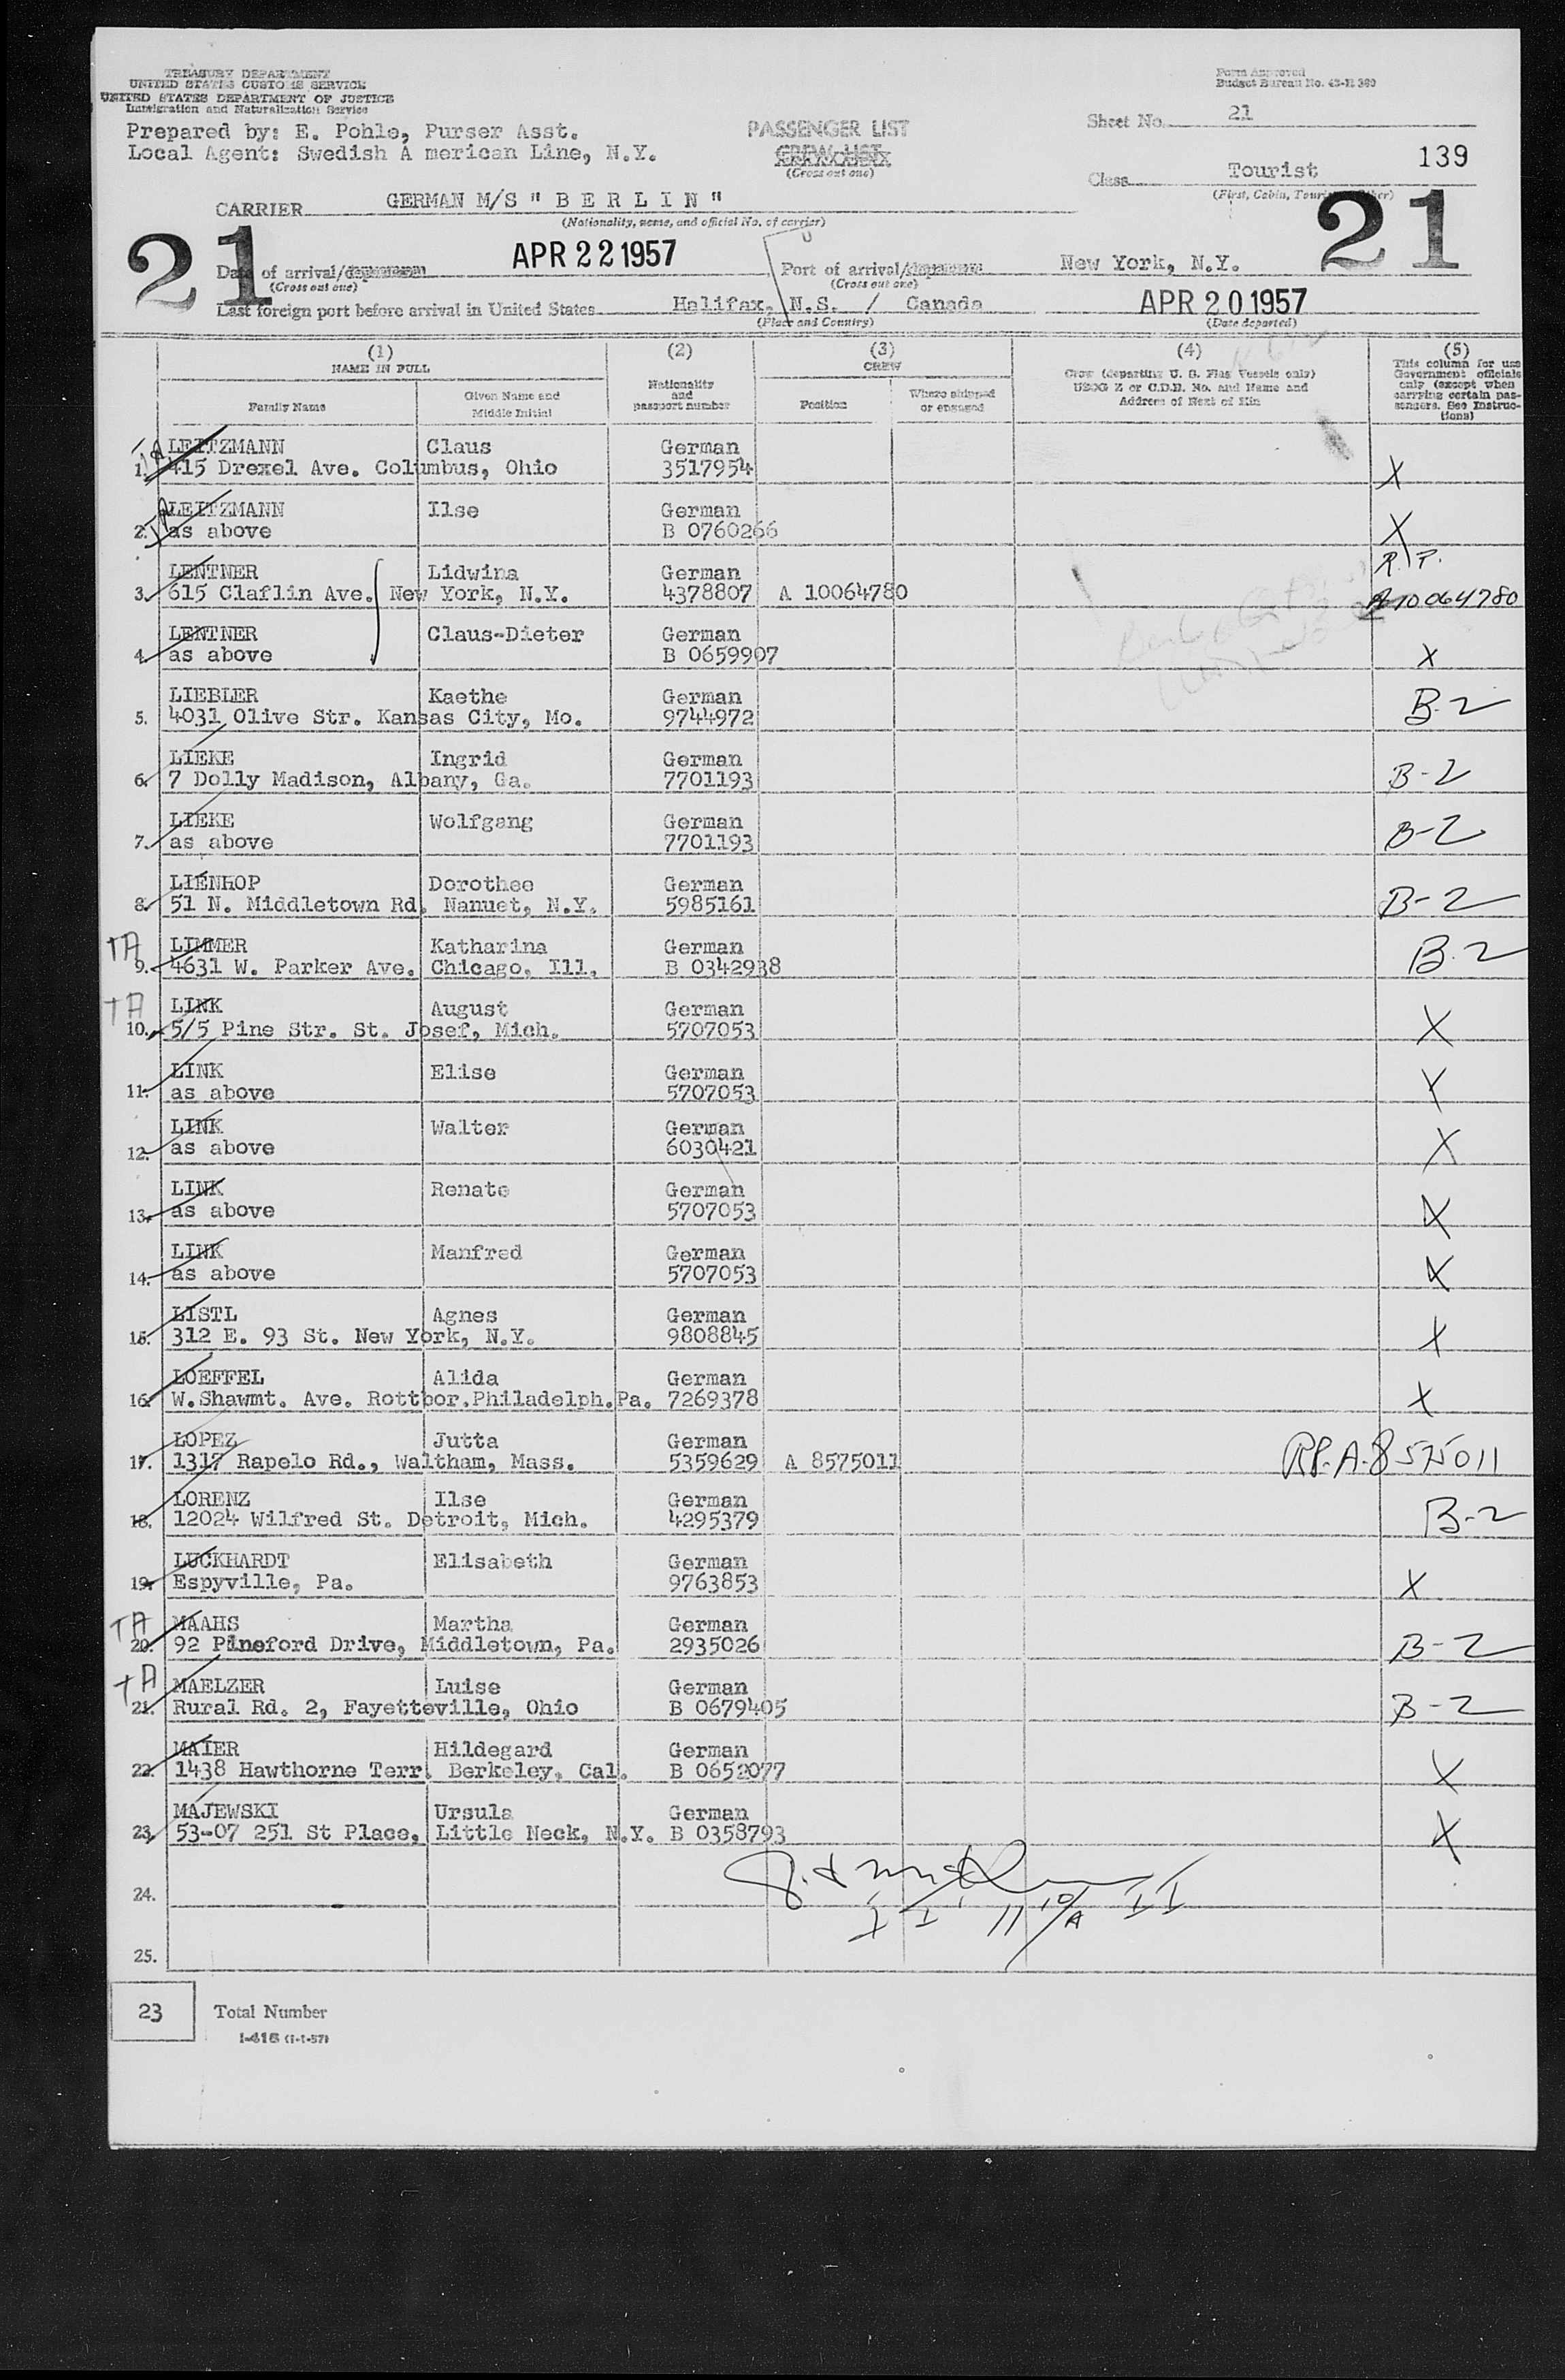 TREASURY DEPARTMENT
UNITED STATES CUSTOMS SERVICE
UNITED STATES DEPARTMENT OF JUSTICE
Immigration and Naturalization Service
Form Approved
Budget Bureau No. 43-R 390
Prepared by: E. Pohle, Purser Asst.
Local Agent: Swedish A merican Line, N.Y.
PASSENGER LIST
CREW LIST
(Cross out one)
Sheet No. 21
139
Class Tourist
(First, Cabin, Tourist, or Other)
CARRIER GERMAN M/S " B E R L I N "
(Nationality, name, and official No. of carrier)
21
21
Date of arrival/departure APR 22 1957 Port of arrival/departure New York, N.Y.
(Cross out one) (Cross out one)
Last foreign port before arrival in United States Halifax, N.S. / Canada APR 20 1957
(Place and Country) (Date departed)
(1) (2) (3) (4) (5)
NAME IN FULL
Family Name
Given Name and Middle Initial
Nationality and passport number
CREW
Position
Where shipped or engaged
Crew (departing U. S. Flag Vessels only)
USCG Z or C.D.B. No. and Name and
Address of Next of Kin
This column for use
Government officials
only (except when
carrying certain pas-
sengers. See Instruc-
tions)
TA LEITZMANN Claus German
1. 415 Drexel Ave. Columbus, Ohio 3517954 X
TA LEITZMANN Ilse German
2. as above B 0760266 X
LENTNER Lidwina German R.P.
3. 615 Claflin Ave. New York, N.Y. 4378807 A 10064780 A10064780
LENTNER Claus-Dieter German
4. as above B 0659907 X
LIEBLER Kaethe German
5. 4031 Olive Str. Kansas City, Mo. 9744972 B-2
LIEKE Ingrid German
6. 7 Dolly Madison, Albany, Ga. 7701193 B-2
LIEKE Wolfgang German
7. as above 7701193 B-2
LIENHOP Dorothee German
8. 51 N. Middletown Rd. Nanuet, N.Y. 5985161 B-2
TA LIMMER Katharina German
9. 4631 W. Parker Ave. Chicago, Ill. B 0342938 B-2
TA LINK August German
10. 5/5 Pine Str. St. Josef, Mich. 5707053 X
LINK Elise German
11. as above 5707053 X
LINK Walter German
12. as above 6030421 X
LINK Renate German
13. as above 5707053 X
LINK Manfred German
14. as above 5707053 X
LISTL Agnes German
15. 312 E. 93 St. New York, N.Y. 9808845 X
LOEFFEL Alida German
16. W.Shawmt. Ave. Rottbor.Philadelph.Pa. 7269378 X
LOPEZ Jutta German
17. 1317 Rapelo Rd., Waltham, Mass. 5359629 A 8575011 RP.A.8575011
LORENZ Ilse German
18. 12024 Wilfred St. Detroit, Mich. 4295379 B-2
LUCKHARDT Elisabeth German
19. Espyville, Pa. 9763853 X
TA MAAHS Martha German
20. 92 Pineford Drive, Middletown, Pa. 2935026 B-2
TA MAELZER Luise German
21. Rural Rd. 2, Fayetteville, Ohio B 0679405 B-2
MAIER Hildegard German
22. 1438 Hawthorne Terr. Berkeley, Cal. B 0652077 X
MAJEWSKI Ursula German
23. 53-07 251 St Place, Little Neck, N.Y. B 0358793 X
24.
25.
23 Total Number
I-418 (1-1-57)